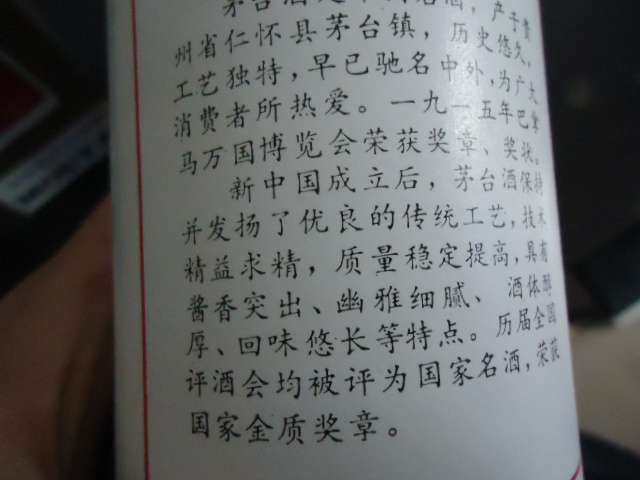 茅台酒是中国名酒,产于贵
州省仁怀县茅台镇,历史悠久,
工艺独特,早已驰名中外,为广大
消费者所热爱。一九一五年巴拿
马万国博览会荣获奖章、奖状。
新中国成立后,茅台酒保持
并发扬了优良的传统工艺,技术
精益求精,质量稳定提高,具有
酱香突出、幽雅细腻、酒体醇
厚、回味悠长等特点。历届全国
评酒会均被评为国家名酒,荣获
国家金质奖章。